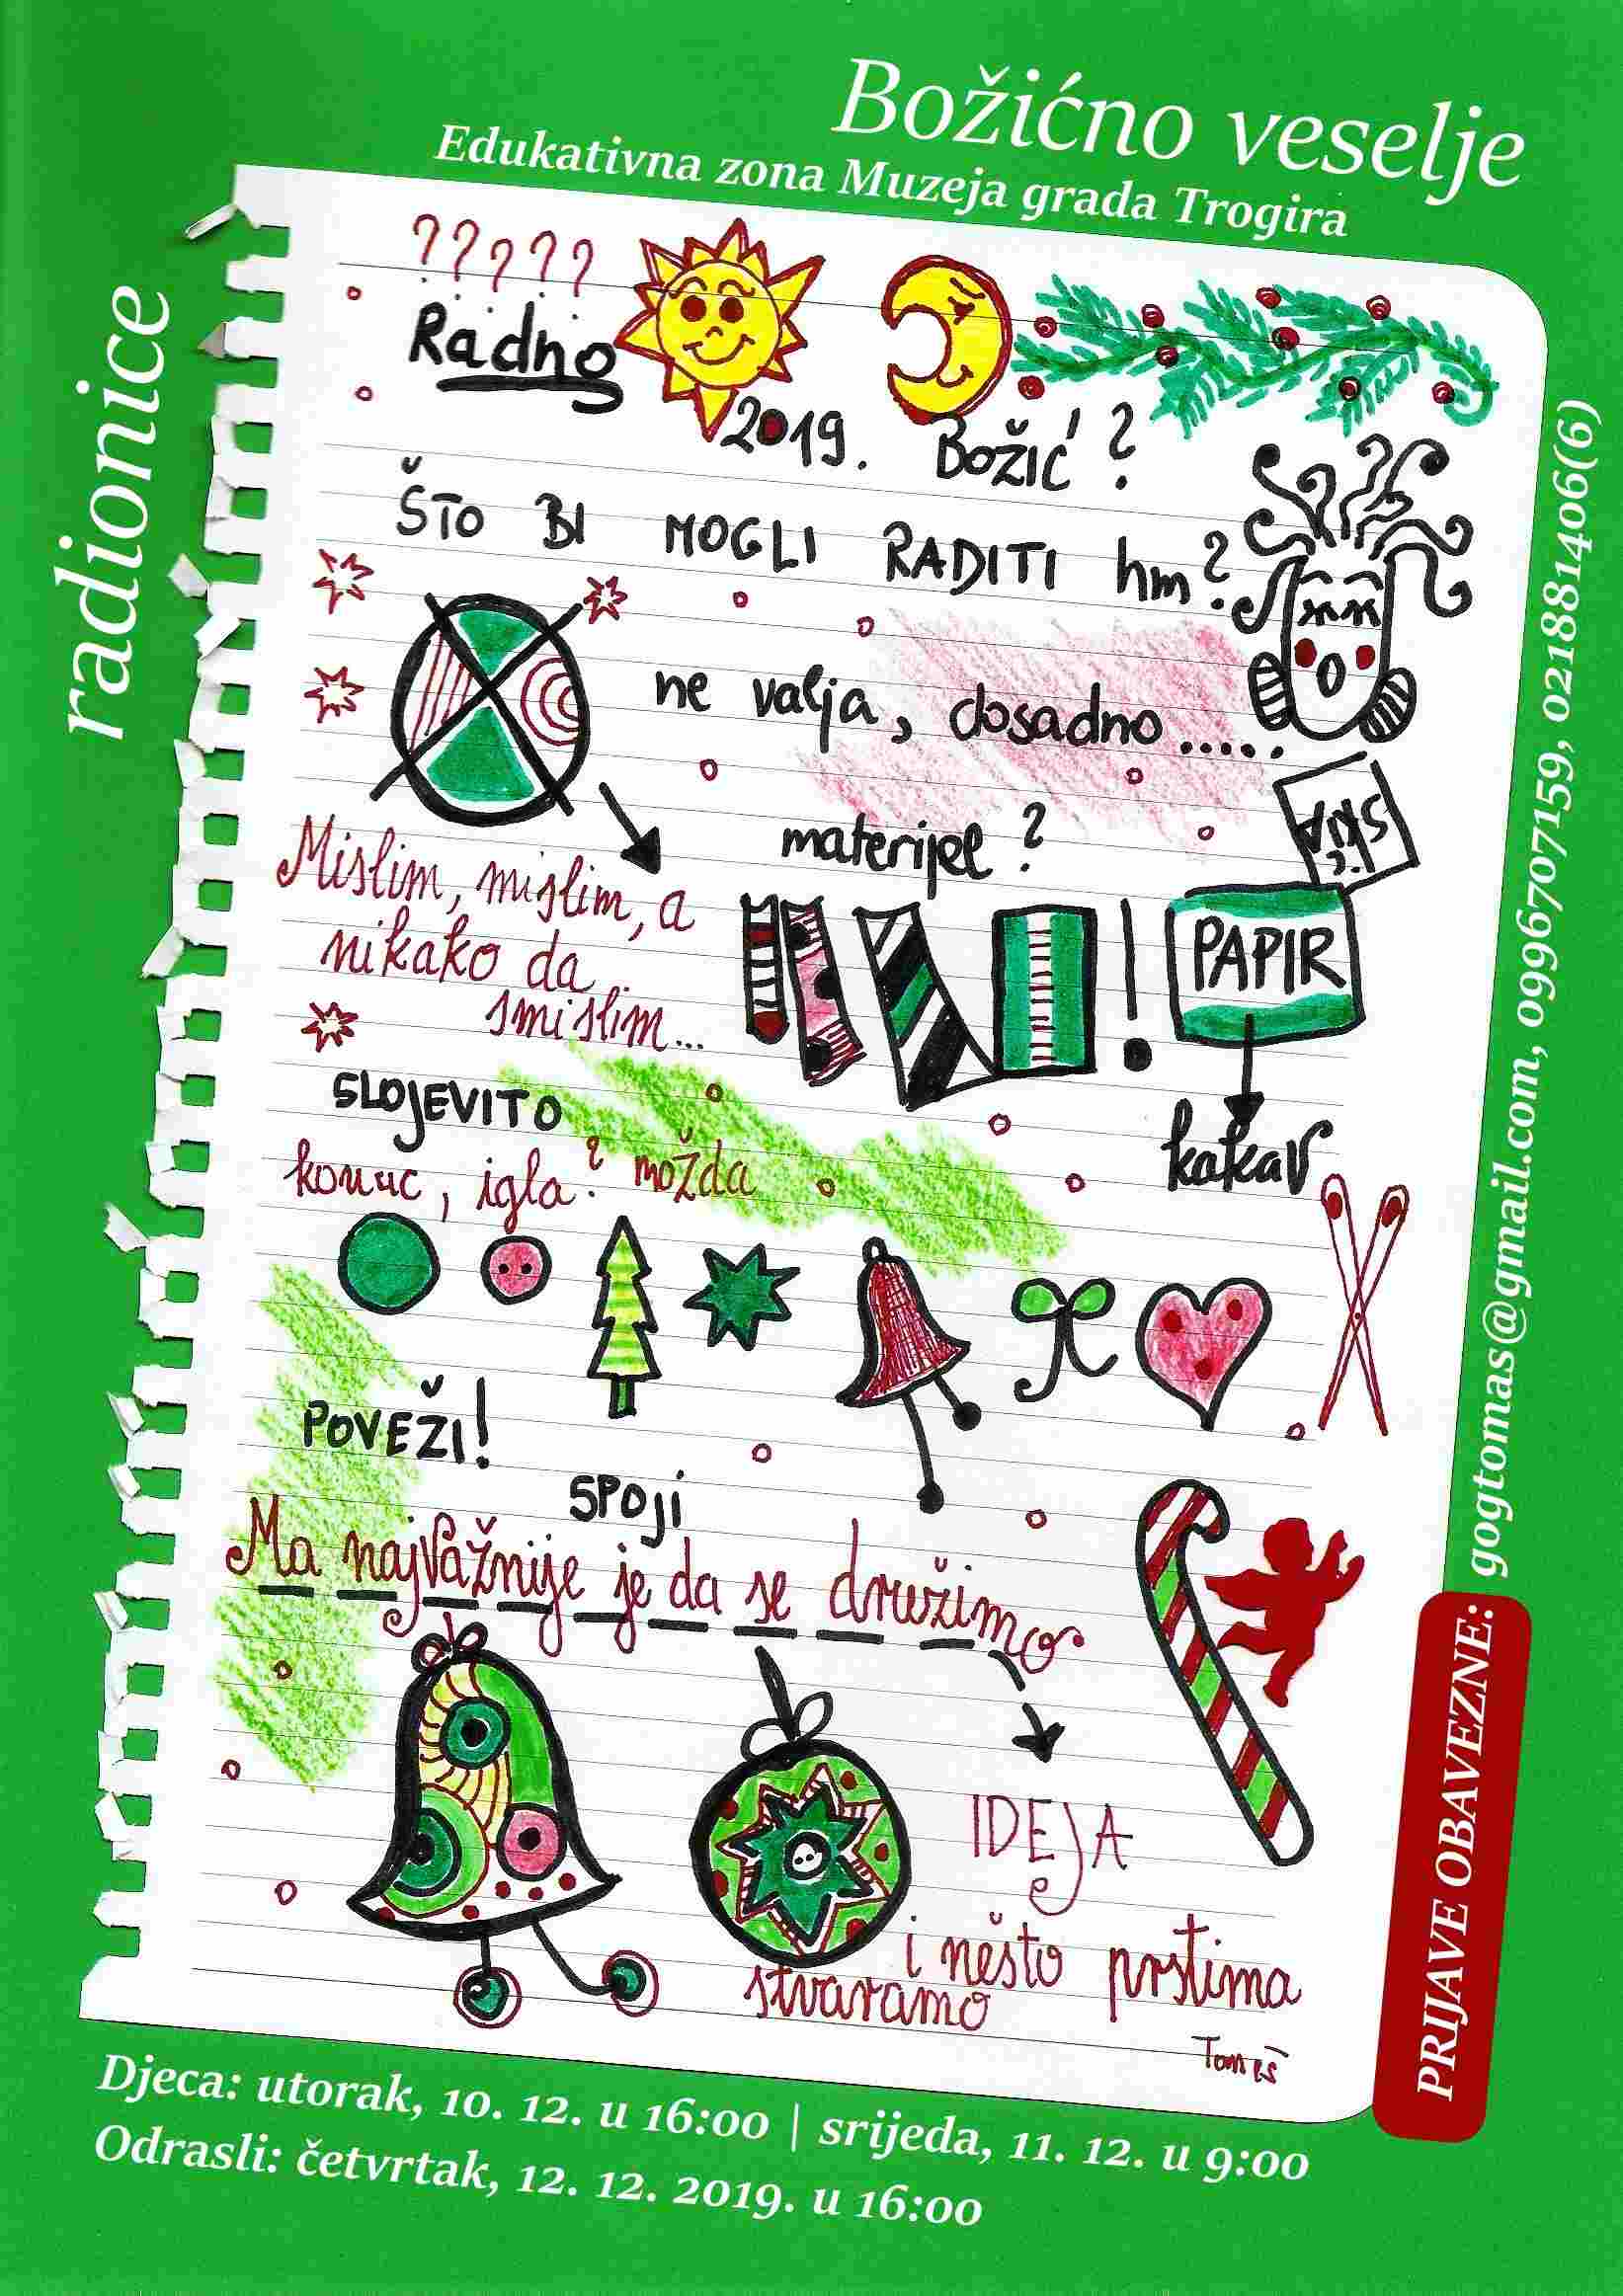 Božićno veselje
Edukativna zona Muzeja grada Trogira
radionice
?????
Radno
2019. Božić?
ŠTO BI MOGLI RADITI hm?
ne valja, dosadno.....
materijal?
Mislim, mislim, a
nikako da
smislim...
!
PAPIR
kakav
SLOJEVITO
konac, igla? možda
POVEŽI!
SPOJI
Ma najvažnije je da se družimo
IDEJA
i nešto prstima
stvaramo
Tomaš
PRIJAVE OBAVEZNE: gogtomas@gmail.com, 0996707159, 021881406(6)
Djeca: utorak, 10. 12. u 16:00 | srijeda, 11. 12. u 9:00
Odrasli: četvrtak, 12. 12. 2019. u 16:00